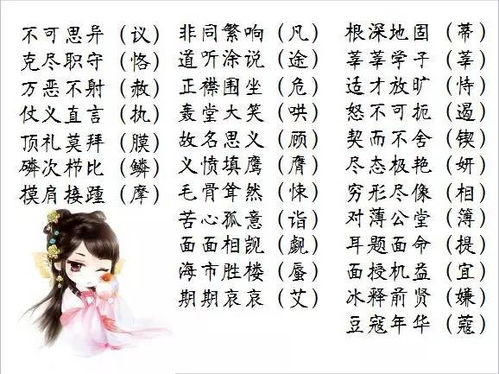 不可思异（议）
克尽职守（恪）
万恶不射（赦）
仗义直言（执）
顶礼莫拜（膜）
磷次栉比（鳞）
摸肩接踵（摩）
非同繁响（凡）
道听涂说（途）
正襟围坐（危）
轰堂大笑（哄）
故名思义（顾）
义愤填鹰（膺）
毛骨耸然（悚）
苦心孤意（诣）
面面相觊（觑）
海市胜楼（蜃）
期期哀哀（艾）
根深地固（蒂）
莘莘学子（莘）
适才放旷（恃）
怒不可扼（遏）
契而不舍（锲）
尽态极艳（妍）
穷形尽像（相）
对薄公堂（簿）
耳题面命（提）
面授机益（宜）
冰释前贤（嫌）
豆寇年华（蔻）